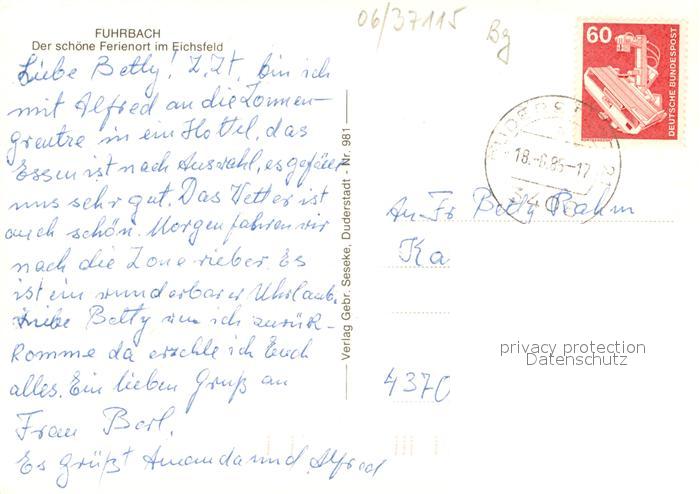 FUHRBACH
Der schöne Ferienort im Eichsfeld
06/37115
Bg
60
DEUTSCHE BUNDESPOST
18.-6.85-17
3408
Liebe Betty! Z.Zt. bin ich
mit Alfred an die Zonnen-
grentze in ein Hottel, das
Essen ist nach Auswahl, es gefählt
uns sehr gut. Das Wetter ist
auch schön. Morgen fahren wir
nach die Zone rieber. Es
ist ein wunderbarer Uhrlaub.
Liebe Betty wen ich zurük-
komme da erzehle ich Euch
alles. Ein lieben Gruß an
Frau Barl.
Es grüßt Amanda und Alfred
Verlag Gebr. Seseke, Duderstadt - Nr. 981
An Fr Betty Rahm
Ka
4370
privacy protection
Datenschutz